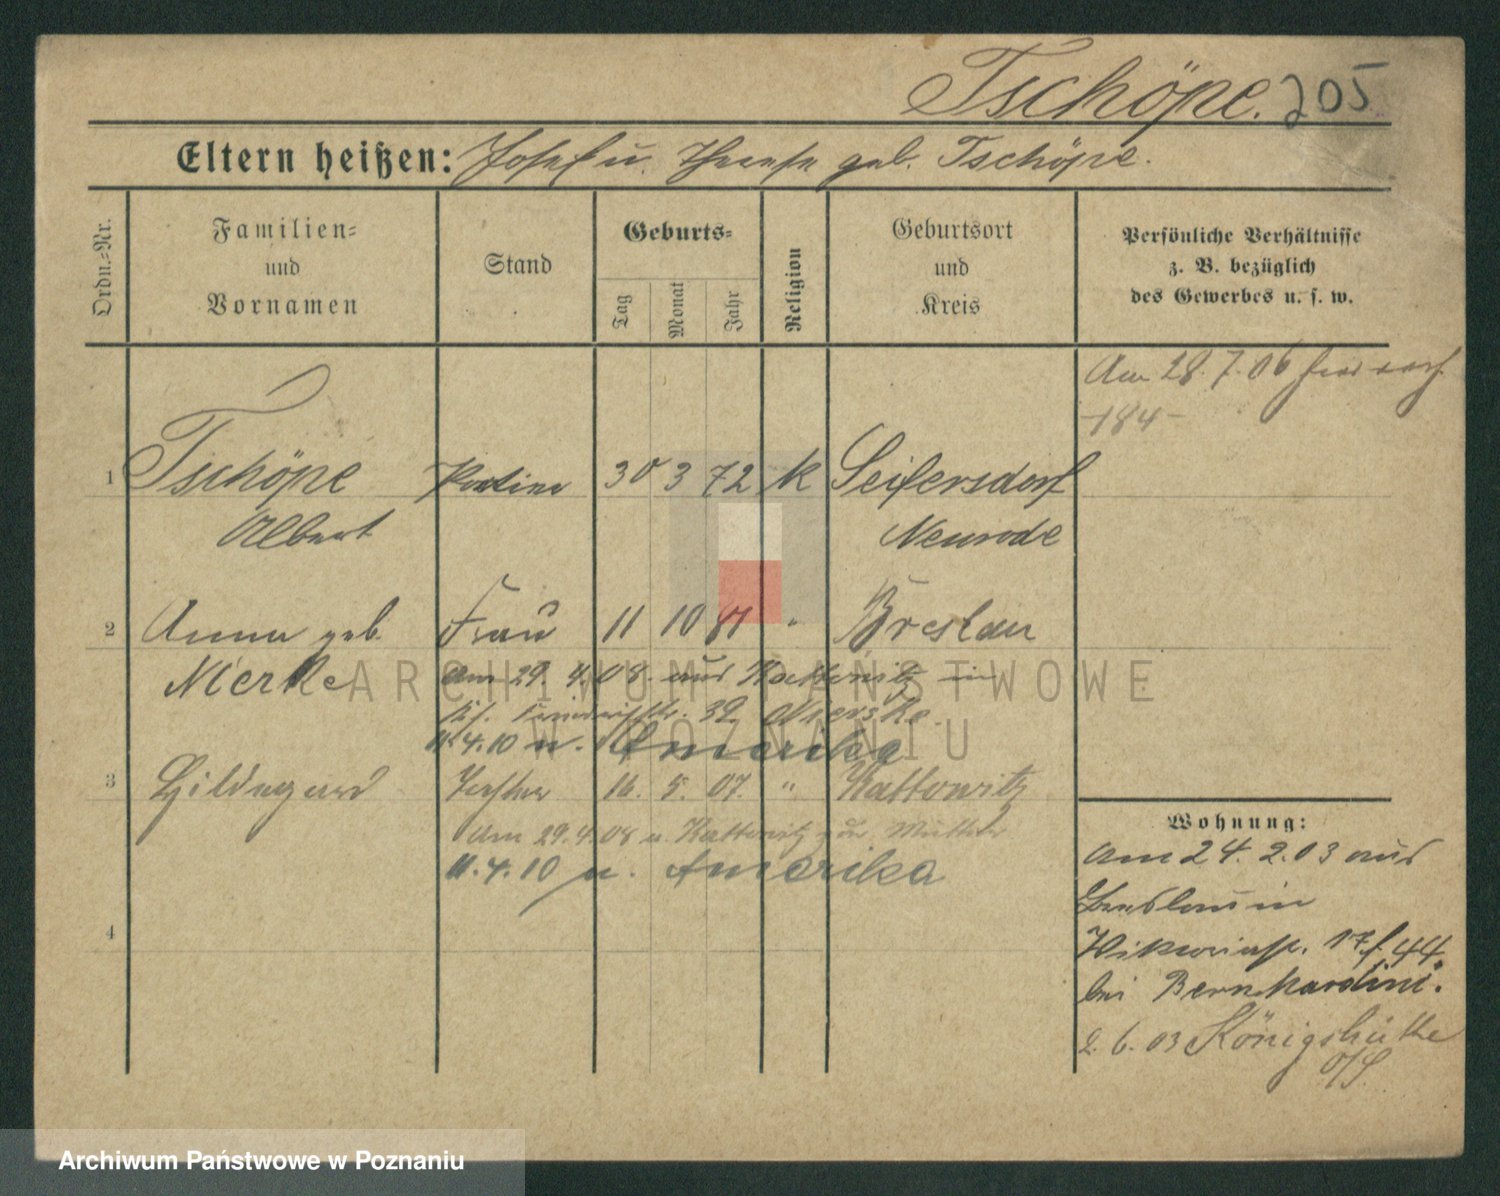 Tschöpe. 205
Eltern heißen: Josef u. Therese geb. Tschöpe.
Ordn.-Nr.
Familien-
und
Vornamen
Stand
Geburts-
Tag
Monat
Jahr
Religion
Geburtsort
und
Kreis
Persönliche Verhältnisse
z. B. bezüglich
des Gewerbes u. s. w.
Am 28.7.06
-184-
1 Tschöpe 30 3 72 K Seifersdorf
Albert Neurode
2 Anna geb. Frau 11 10 81 " Breslau
Merke Am 29.4.08 aus Kattowitz in
39
11.4.10 n. Amerika
3 Hildegard Tochter 16. 5. 07. " Kattowitz
Am 29.4.08 v. Kattowitz zur Mutter
11.4.10 n. Amerika
4
Wohnung:
Am 24.2.03 aus
Breslau in
Viktoriastr. 17 f. 44
bei Bernhardini.
2.6.03 Königshütte
O/S.
ARCHIWUM PAŃSTWOWE
W POZNANIU
Archiwum Państwowe w Poznaniu